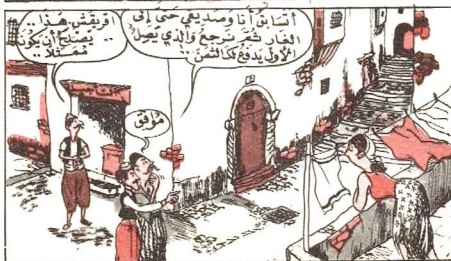 أتسابق أنا وصديقي حتى إلى
الغار ثم نرجع والذي يصل
الأول يدفع لك الثمن ..
موفق
هذا ..
.. يصلح أن يكون
ممثلا